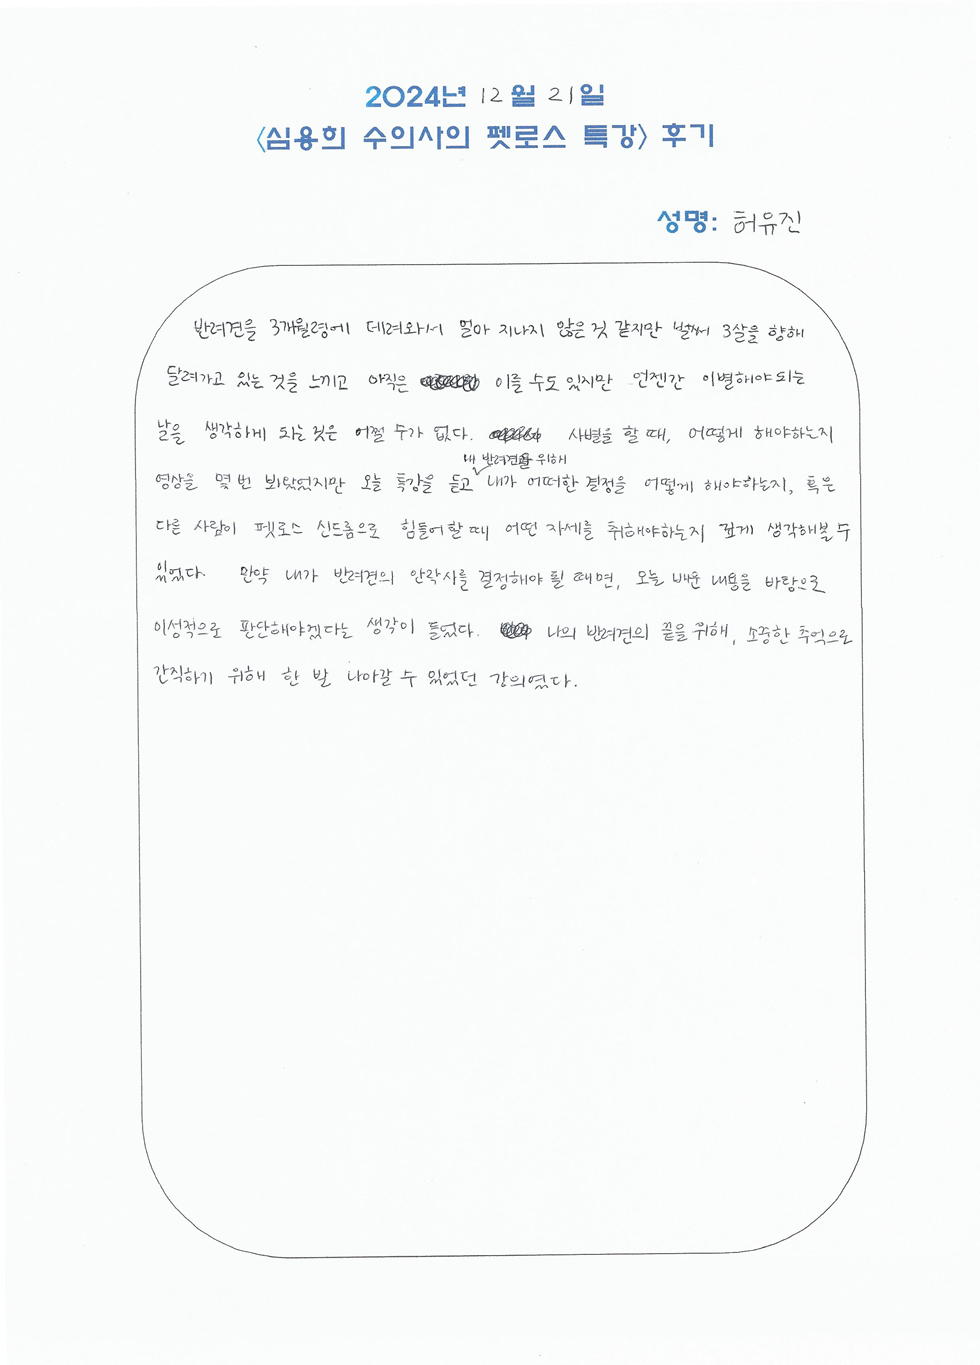 2024년 12월 21일
<심용희 수의사의 펫로스 특강> 후기
성명: 허유진
반려견을 3개월령에 데려와서 얼마 지나지 않은 것 같지만 벌써 3살을 향해
달려가고 있는 것을 느끼고 아직은 이를 수도 있지만 언젠간 이별해야 되는
날을 생각하게 되는 것은 어쩔 수가 없다. 사별을 할 때, 어떻게 해야하는지
내 반려견을 위해
영상을 몇 번 봐왔었지만 오늘 특강을 듣고 내가 어떠한 결정을 어떻게 해야하는지, 혹은
다른 사람이 펫로스 신드롬으로 힘들어할 때 어떤 자세를 취해야하는지 깊게 생각해볼 수
있었다. 만약 내가 반려견의 안락사를 결정해야 될 때면, 오늘 배운 내용을 바탕으로
이성적으로 판단해야겠다는 생각이 들었다. 나의 반려견의 끝을 위해, 소중한 추억으로
간직하기 위해 한 발 나아갈 수 있었던 강의였다.